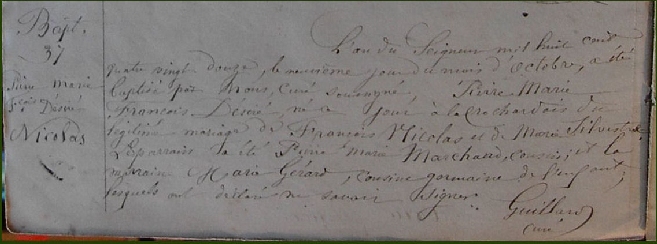 Bapt.
37
Pierre Marie
fçois Désiré
Nicolas
L'an du Seigneur mil huit cent
quatre vingt douze, le neuvième jour du mois d'Octobre, a été
baptisé par Nous, curé soussigné, Pierre Marie
François Désiré, né ce jour à la
légitime mariage de François Nicolas et de Marie Silvestre
Le parrain a été Pierre Marie Marchand, cousin; et la
marraine Marie Gérard, cousine germaine de l'enfant,
lesquels ont déclaré ne savoir signer.
Guillard
curé